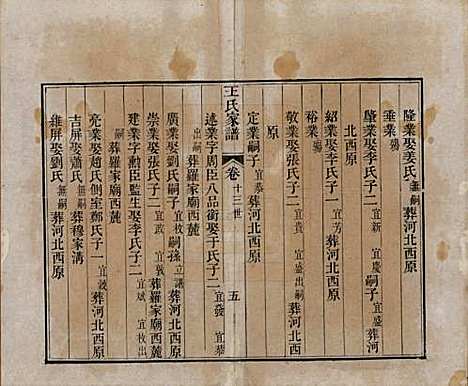 隆業娶姜氏無嗣葬河北西原
垂業殤
肇業娶李氏子二宜新 宜慶嗣子宜盛葬河
北西原
紹業娶李氏子一宜芳葬河北西原
裕業殤
敬業娶張氏子二宜 宜盛出嗣葬河北西
原
定業嗣子宜恭葬河北西原
王氏家譜 卷 十三世 五
述業字周臣八品銜娶于氏子二宜發 宜恭
出嗣葬羅家廟西麓
廣業娶劉氏嗣子宜枚嗣孫立謙葬河北西原
崇業娶張氏子二宜政 宜敦葬羅家廟西麓
建業字勲臣監生娶李氏子二宜斌 宜枚出
嗣葬羅家廟西麓
亮業娶趙氏側室鄭氏子一宜敦葬河北西原
吉屏娶蕭氏無嗣葬穆家溝
維屏娶劉氏無嗣葬河北西原